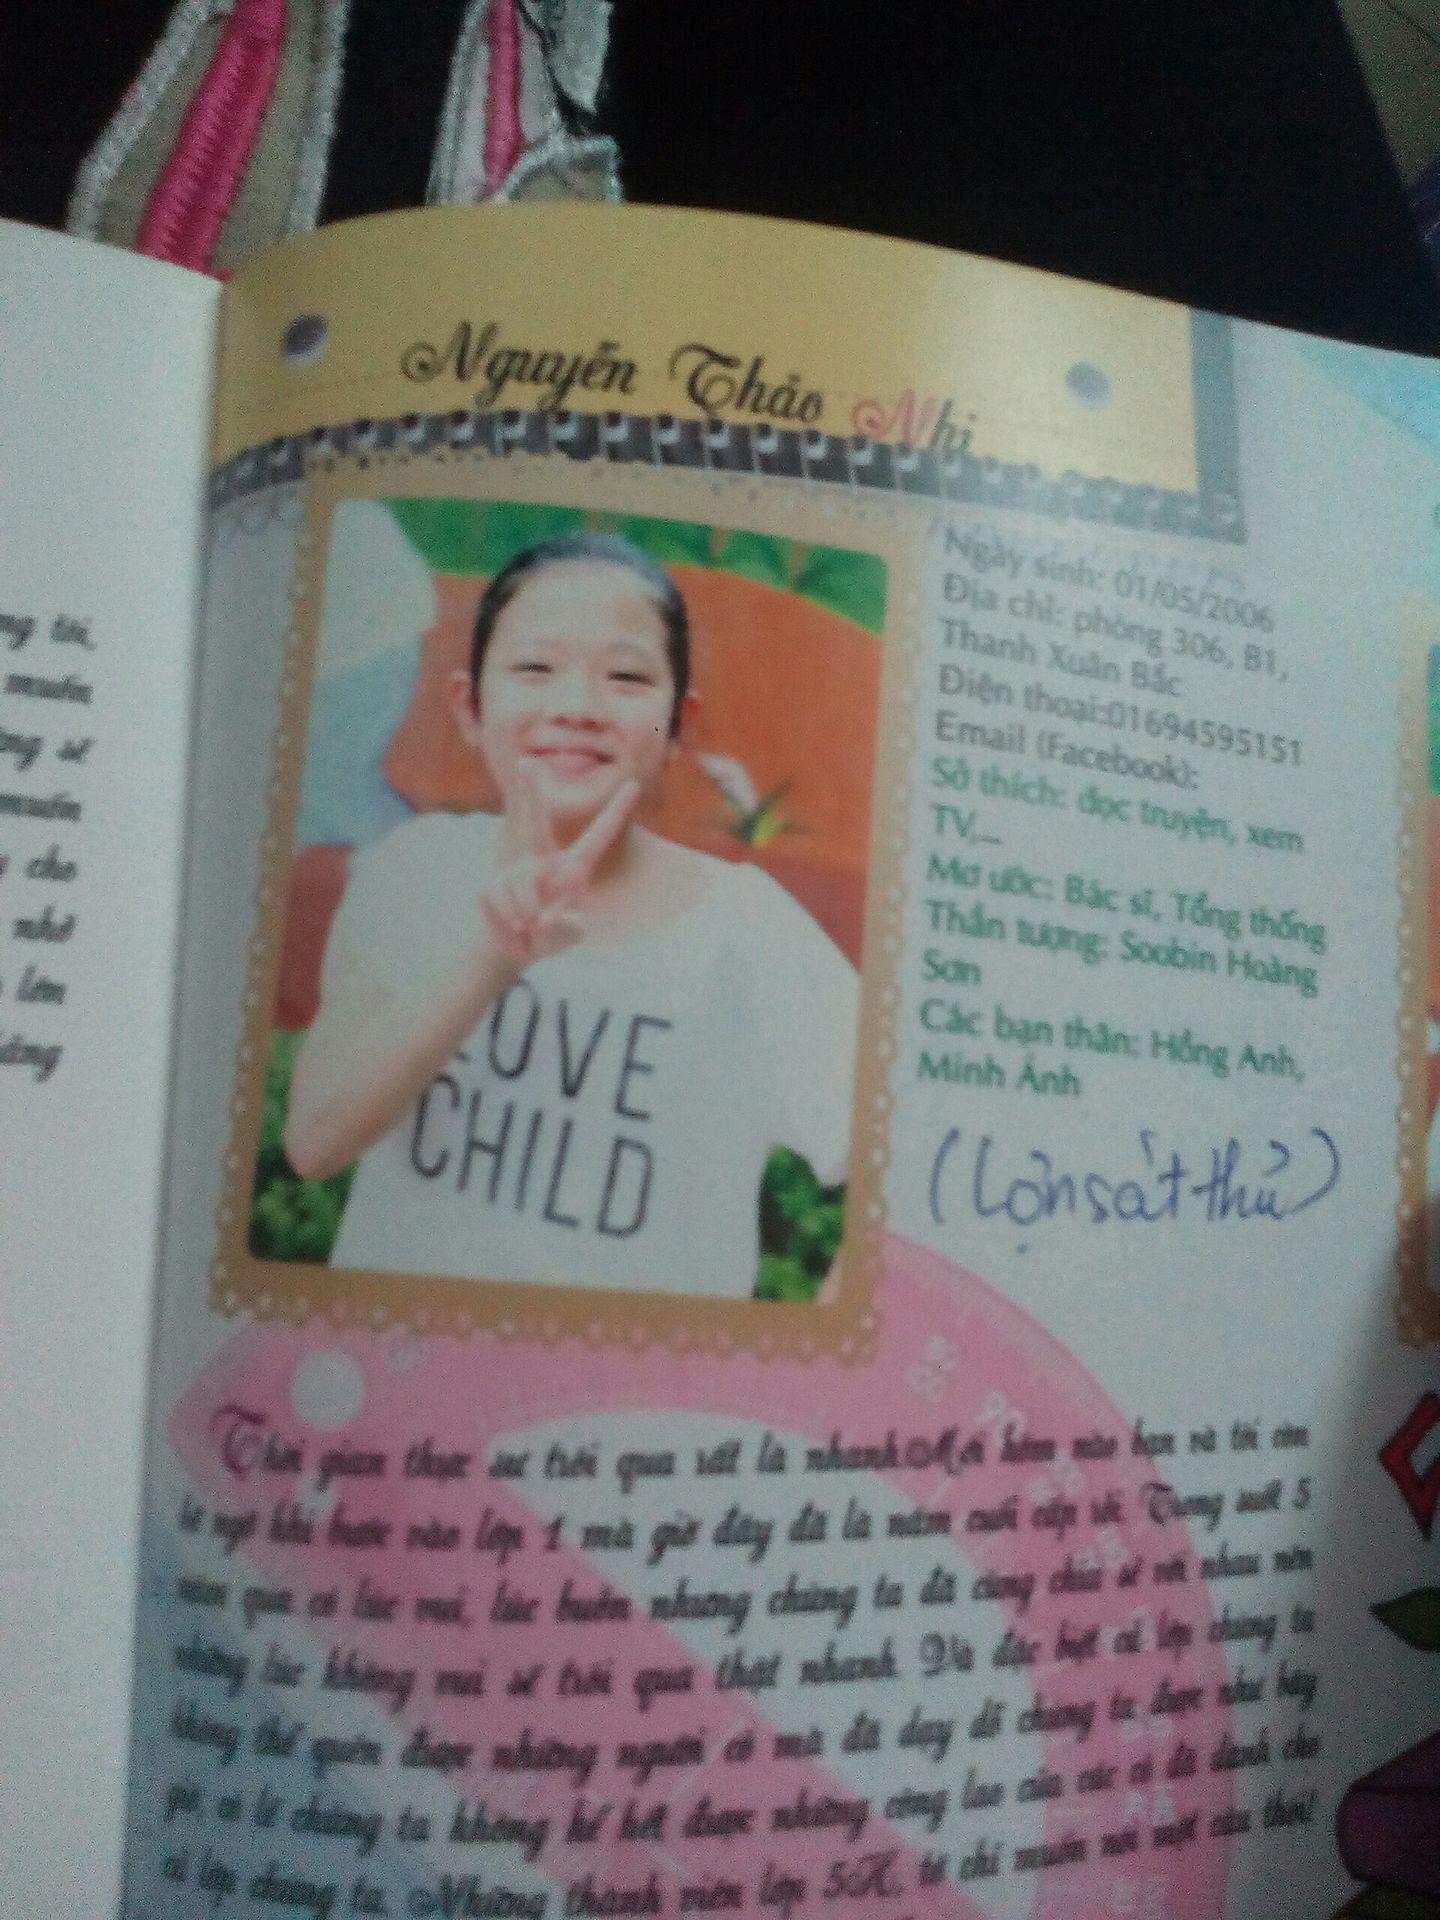 Nguyễn Thảo Nhi
Ngày sinh: 01/05/2006
Địa chỉ: phòng 306, B1,
Thanh Xuân Bắc
Điện thoại:01694595151
Email (Facebook):
Sở thích: đọc truyện, xem
TV,...
Mơ ước: Bác sĩ, Tổng thống
Thần tượng: Soobin Hoàng
Sơn
Các bạn thân: Hồng Anh,
Minh Ánh
(Lợn sát thủ)
LOVE
CHILD
Thời gian thực sự trôi qua rất là nhanh. Mới hôm nào bạn và tôi còn
bỡ ngỡ khi bước vào lớp 1 mà giờ đây đã là năm cuối cấp rồi. Trong suốt 5
năm qua có lúc vui, lúc buồn nhưng chúng ta đã cùng chia sẻ với nhau nên
những lúc không vui sẽ trôi qua thật nhanh. Và đặc biệt cả lớp chúng ta
không thể quên được những người cô mà đã dạy dỗ chúng ta được như bây
giờ, có lẽ chúng ta không kể hết được những công lao của các cô đã dành cho
cả lớp chúng ta. Những thành viên lớp 5H, tớ chỉ muốn nói một câu thôi!
ng tôi,
muốn
ng sẽ
muốn
cho
nhớ
lớn